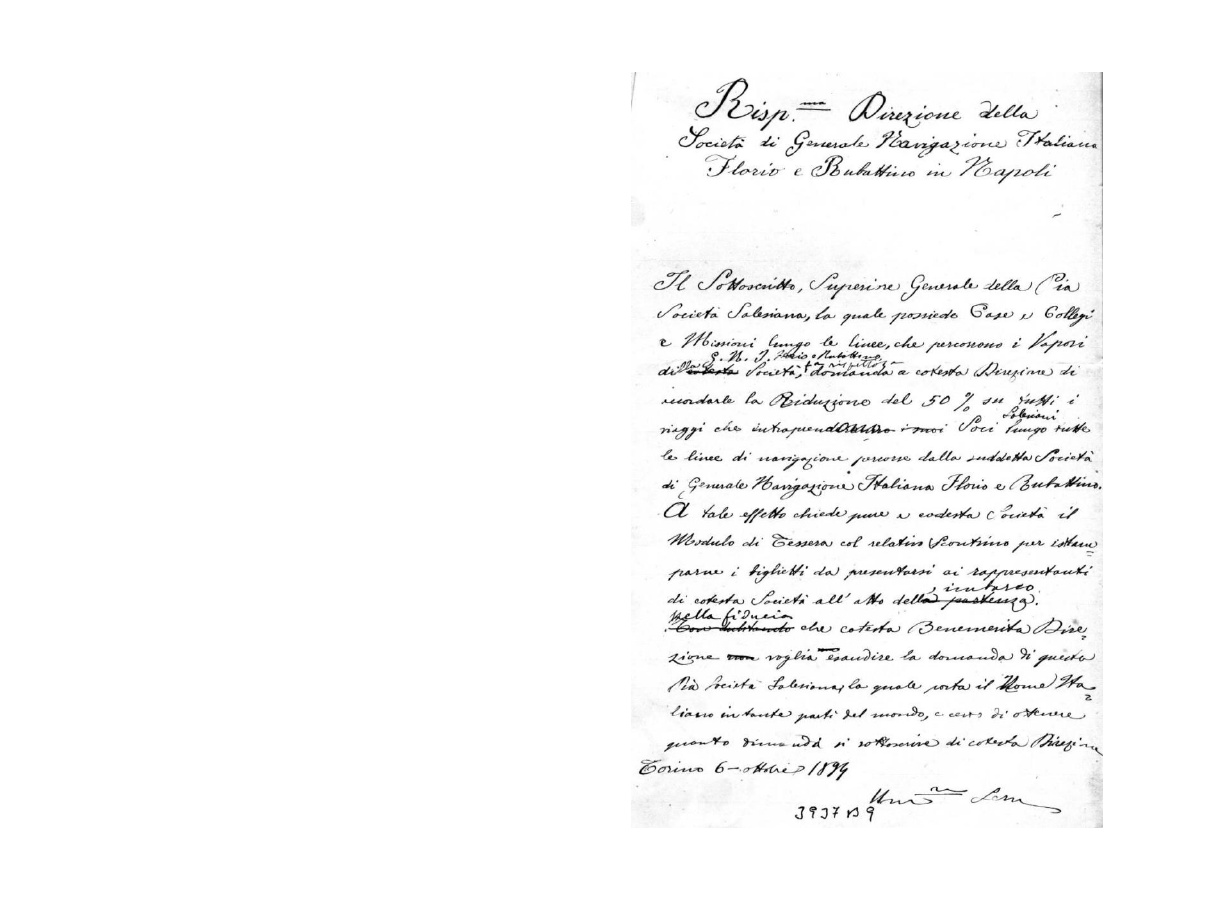 Risp.ma Direzione della
Società di Generale Navigazione Italiana
Florio e Rubattino in Napoli
Il Sottoscritto, Superiore Generale della Pia
Società Salesiana, la quale possiede Case e Collegi
e Missioni lungo le linee, che percorrono i Vapori
G. N. I. Florio e Rubattino
della cotesta Società, fa rispettosa domanda a cotesta Direzione di
accordarle la Riduzione del 50 % su tutti i
Salesiani
viaggi che intraprenderanno i suoi Soci lungo tutte
le linee di navigazione percorse dalla suddetta Società
di Generale Navigazione Italiana Florio e Rubattino.
A tale effetto chiede pure a codesta Società il
Modulo di Tessera col relativo Scontrino per istam=
parne i biglietti da presentarsi ai rappresentanti
imbarco
di cotesta Società all' atto della partenza.
Nella fiducia
Non dubitando che cotesta Benemerita Dire=
zione non voglia esaudire la domanda di questa
Pia Società Salesiana, la quale porta il Nome Ita=
liano in tante parti del mondo, e certo di ottenere
quanto dimanda si sottoscrive di cotesta Direzione
Torino 6 - ottobre 1894
Um.mo Serv
3937 B 9